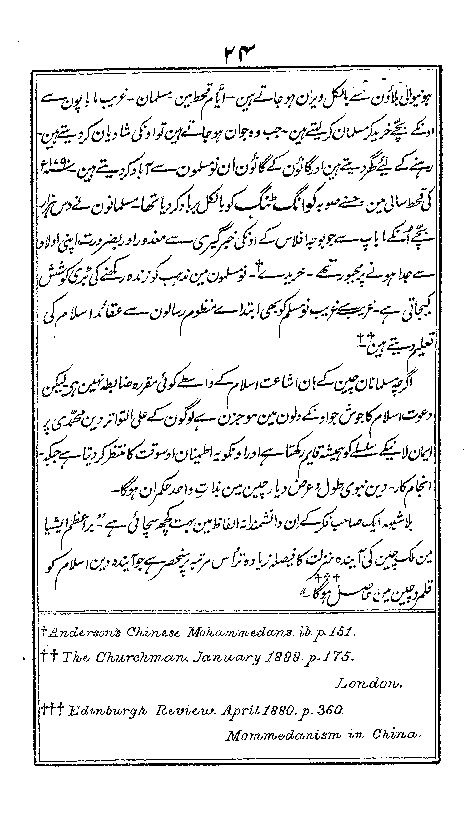 ۲۴
ہونیوالی بلاؤن سے بالکل ویران ہو جاتے ہین - ایّام قحط مین مسلمان - غریب ماباپون سے
اونکے بچّے خرید کر مسلمان کر لیتے ہین - جب وہ جوان ہو جاتے ہین تو اونکی شادیان کر دیتے ہین -
رہنے کے لئے گھر دیتے ہین اور گاؤن کے گاؤن ان نو مسلمون سے آباد کر دیتے ہین -
کی قحط سالی مین جسنے صوبہ کوانگ ٹنگ کو بالکل برباد کر دیا تھا - مسلمانون نے دس ہزار
بچّے اونکے ماباپ سے جو بوجہ افلاس کے اونکی خبر گیری سے معذور اور بضرورت اپنی اولاد
سے جدا ہونے پر مجبور تھے - خریدے † - نو مسلمون مین مذہب کو زندہ رکھنے کی بڑی کوشش
کیجاتی ہے - غریب سے غریب نو مسلم کو بھی ابتدا سے منظوم رسالون سے عقائد اسلام کی
تعلیم دیتے ہین ††
اگرچہ مسلمانان چین کے ہان اشاعت اسلام کے واسطے کوئی مقررہ ضابطہ نہین ہی لیکن
دعوت اسلام کا جوش جو اونکے دلون مین موجزن ہے لوگون کے علی التواتر دین محمّدی پر
ایمان لانیکے سلسلے کو ہمیشہ قایم رکھتا ہے اور اونکو بہ اطمینان اوسوقت کا منتظر کر دیتا ہے جبکہ -
انجام کار - دین نبوی طول و عرض دیار چین مین بذات واحد حکمران ہوگا -
بلا شبہہ ایک صاحب کے ان دانشمندانہ الفاظ مین بہت کچھ سچائی ہے "بر اعظم ایشیا
مین ملک چین کی آیندہ منزلت کا فیصلہ زیادہ تر اُس مرتبہ پر منحصر ہے جو آیندہ دین اسلام کو
قلمرو چین مین حاصل ہوگا" †††
† Anderson's Chinese Mohammedans. ib. p. 151.
†† The Churchman. January 1888. p. 175.
London.
††† Edinburgh Review. April 1880. p. 360.
Mommedanism in China.